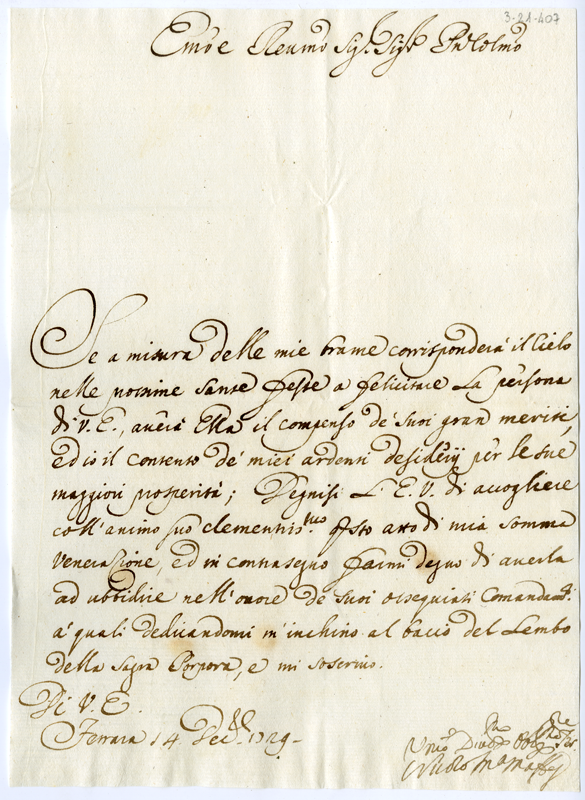 3-21-407
Emõe Reumõ Sig.r Sig.r Prõ Colmõ
Se a misura delle mie brame corrisponderà il Cielo
nelle prossime Sante feste a felicitare La persona
di V. E., averà Ella il compenso de' suoi gran meriti,
ed io il contento de' miei ardenti desiderij per le sue
maggiori prosperità; Degnisi L' E. V. di accogliere
coll' animo suo clementiss.mo questo atto di mia somma
venerazione, ed in contrasegno farmi degno di averla
ad ubbidire nell' onore de' suoi ossequiati Comandam.ti
a' quali dedicandomi m' inchino al baccio del Lembo
della Sagra Porpora, e mi soscrivo.
Di V. E.
Ferrara 14 Dec.bre 1729